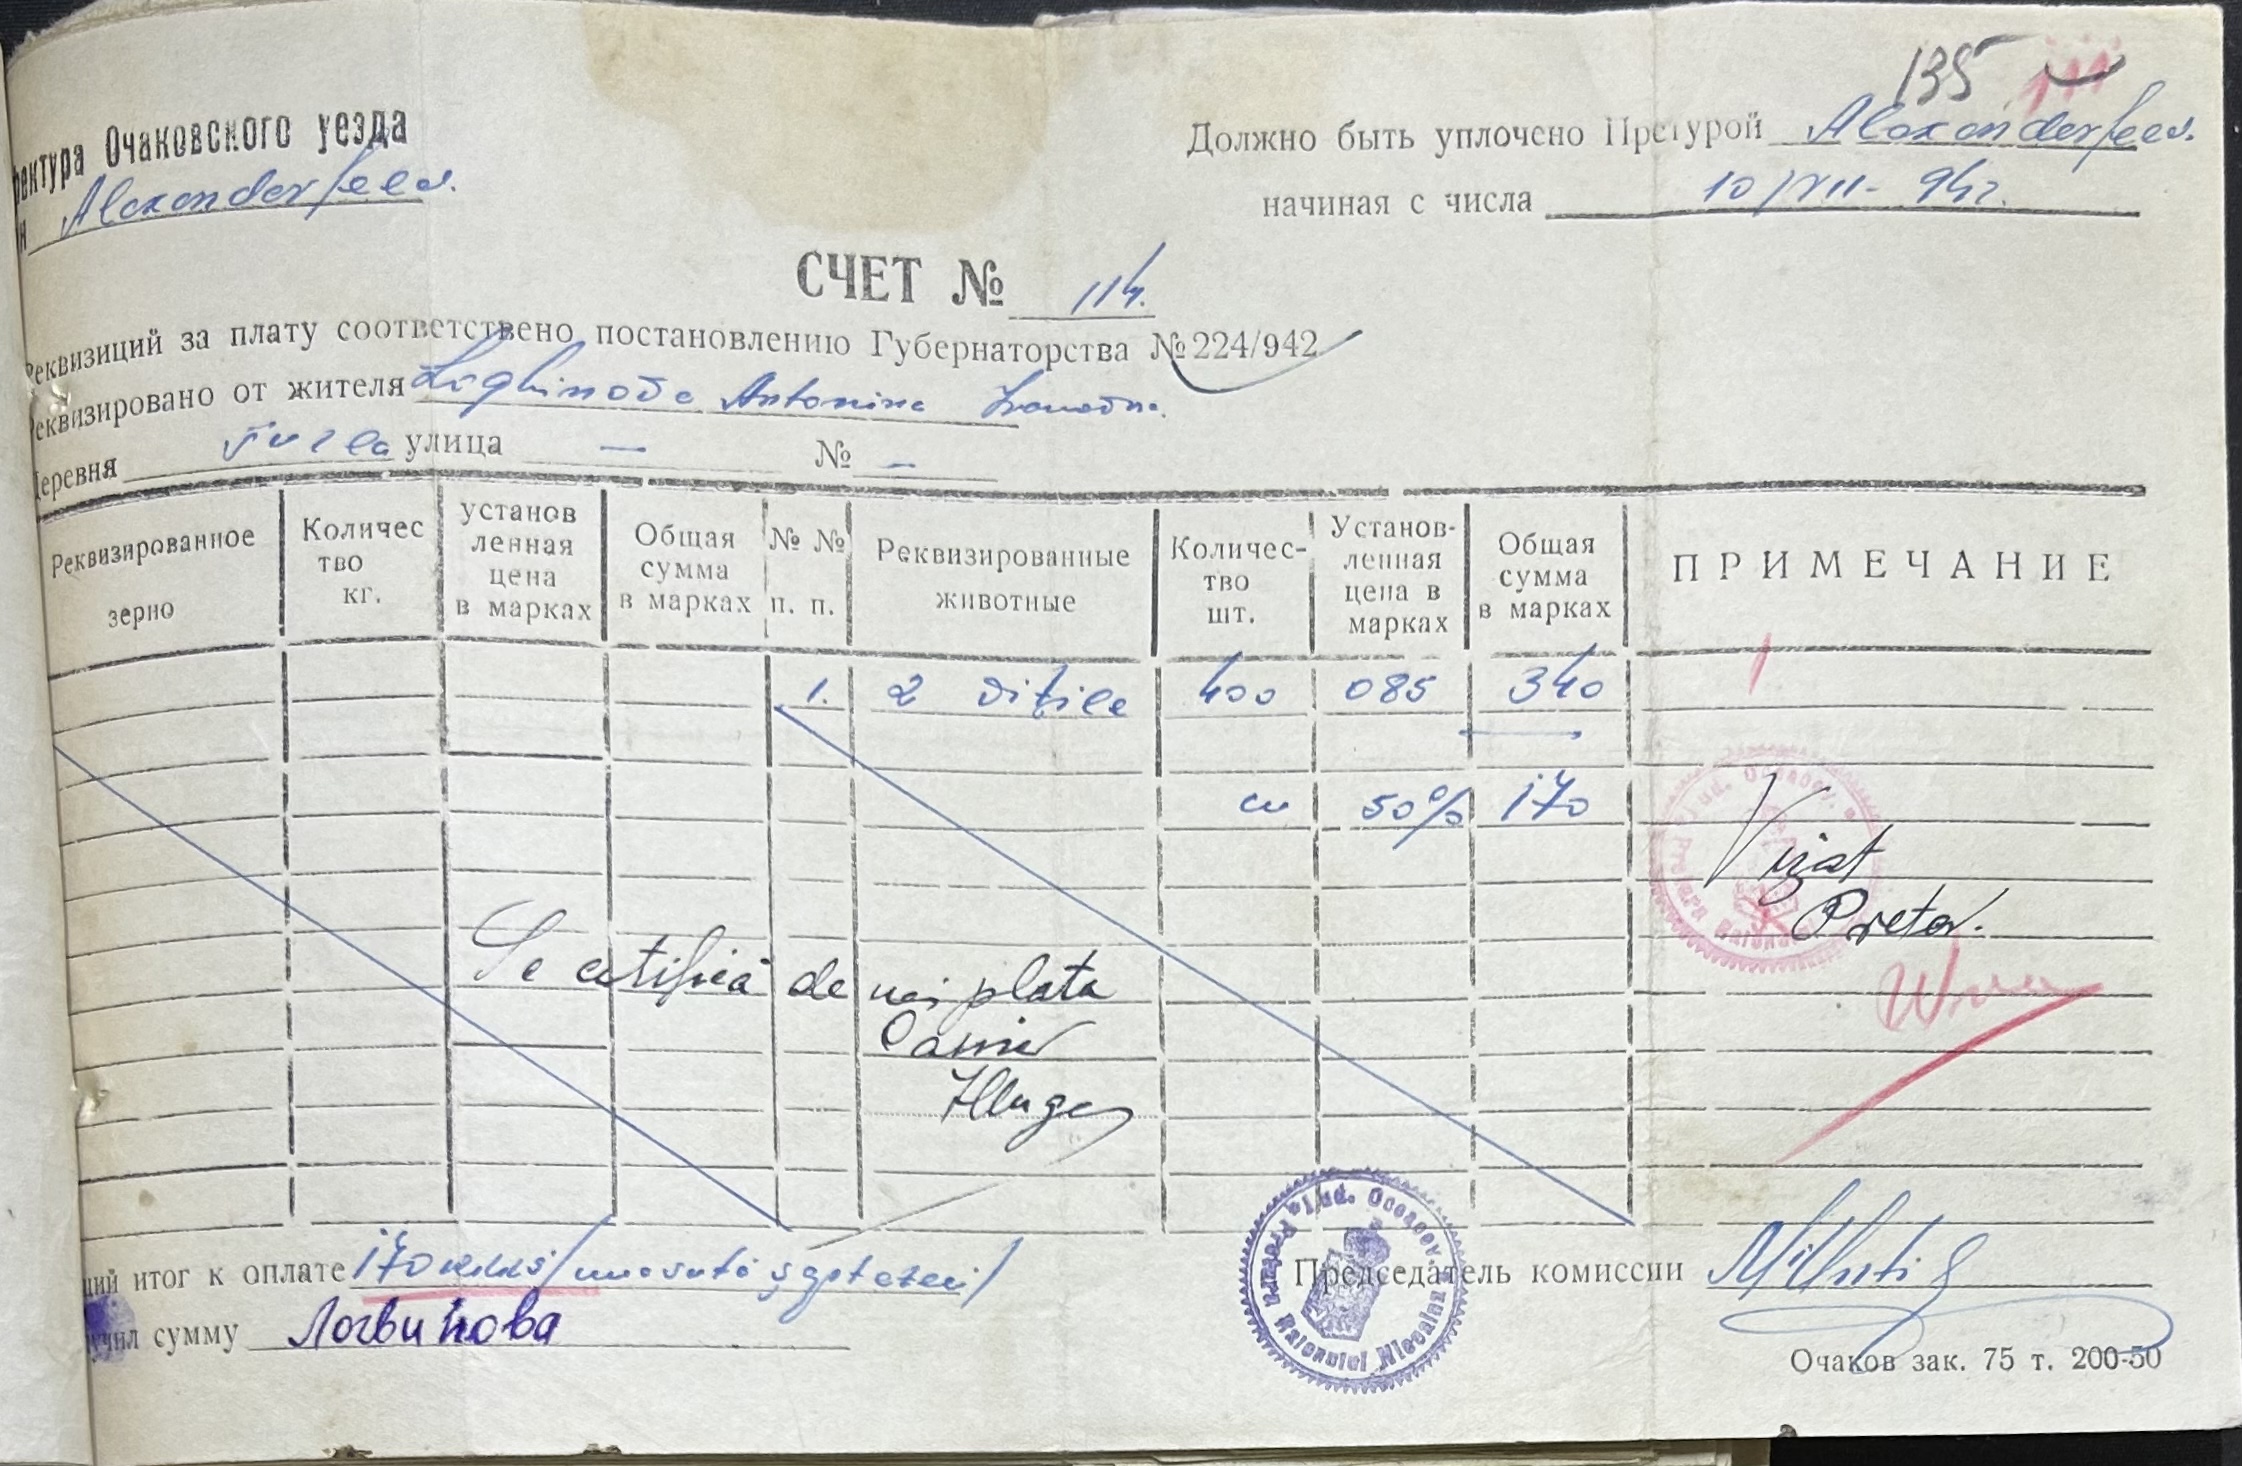 135
ректура Очаковского уезда
Alexanderfeld.
Должно быть уплочено Претурой Alexanderfeld.
начиная с числа 10/VII-942.
СЧЕТ № 114.
Реквизиций за плату соответствено постановлению Губернаторства № 224/942
Реквизировано от жителя Loghinova Antonina Ivanovna.
Деревня улица — № —
Реквизированное зерно
Количес тво кг.
установ ленная цена в марках
Общая сумма в марках
№ № п. п.
Реквизированные животные
Количес- тво шт.
Установ- ленная цена в марках
Общая сумма в марках
ПРИМЕЧАНИЕ
1. 2 viţile 400 085 340
cu 50% 170
Vizat
Pretor.
Se certifică de noi plata
Casier
щий итог к оплате 170 RKKS/una sută şaptezeci/
Председатель комиссии
учил сумму Логвинова
Pretura Raionului Jud. Oceacov
Очаков зак. 75 т. 200-50